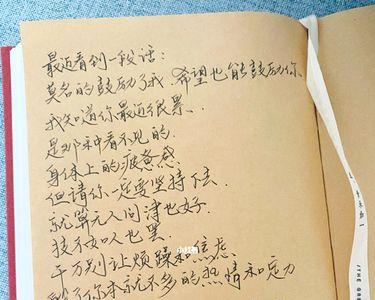 最近看到一段话:
莫名的鼓励了我.希望也能鼓励你.
我知道你最近很累.
是那种看不见的.
身体上的疲惫感.
但请你一定要坚持下去.
就算无人问津也好.
技不如人也罢
千万别让烦躁和焦虑
你本就不多的热情和定力
小红书
THE GRE